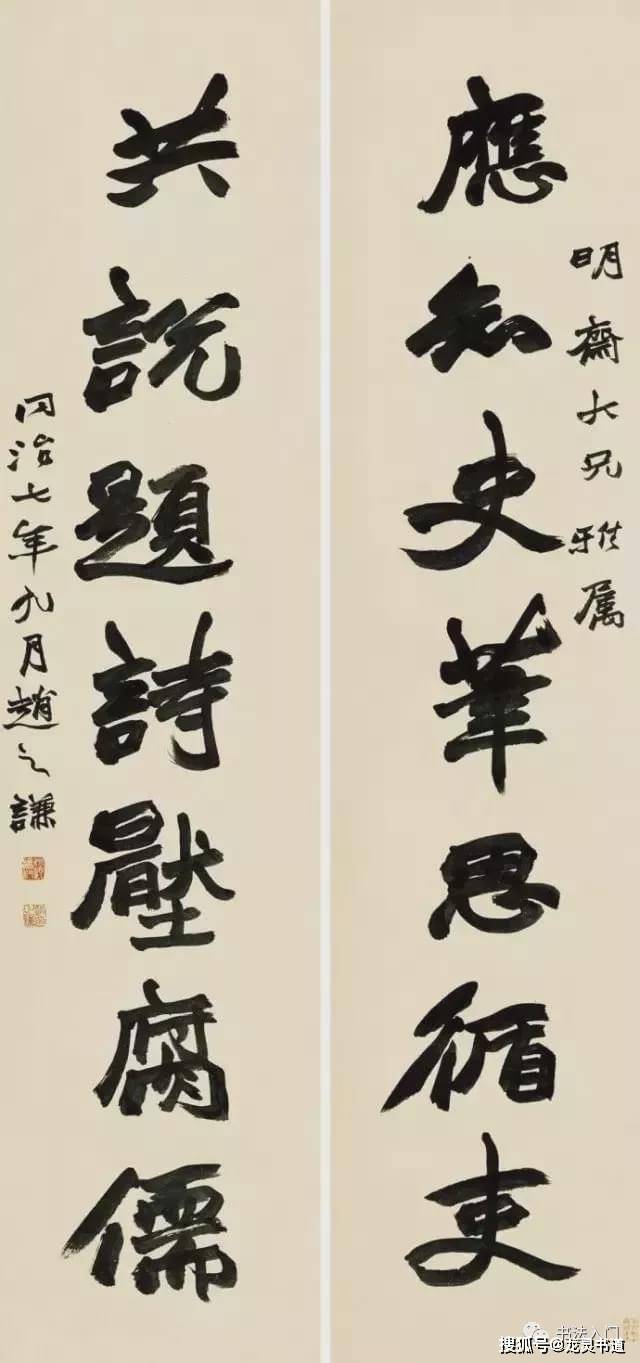 明齋大兄雅属
應知史筆思循吏
共說題詩壓腐儒
同治七年九月趙之謙
书法入门
搜狐号@龙灵书道